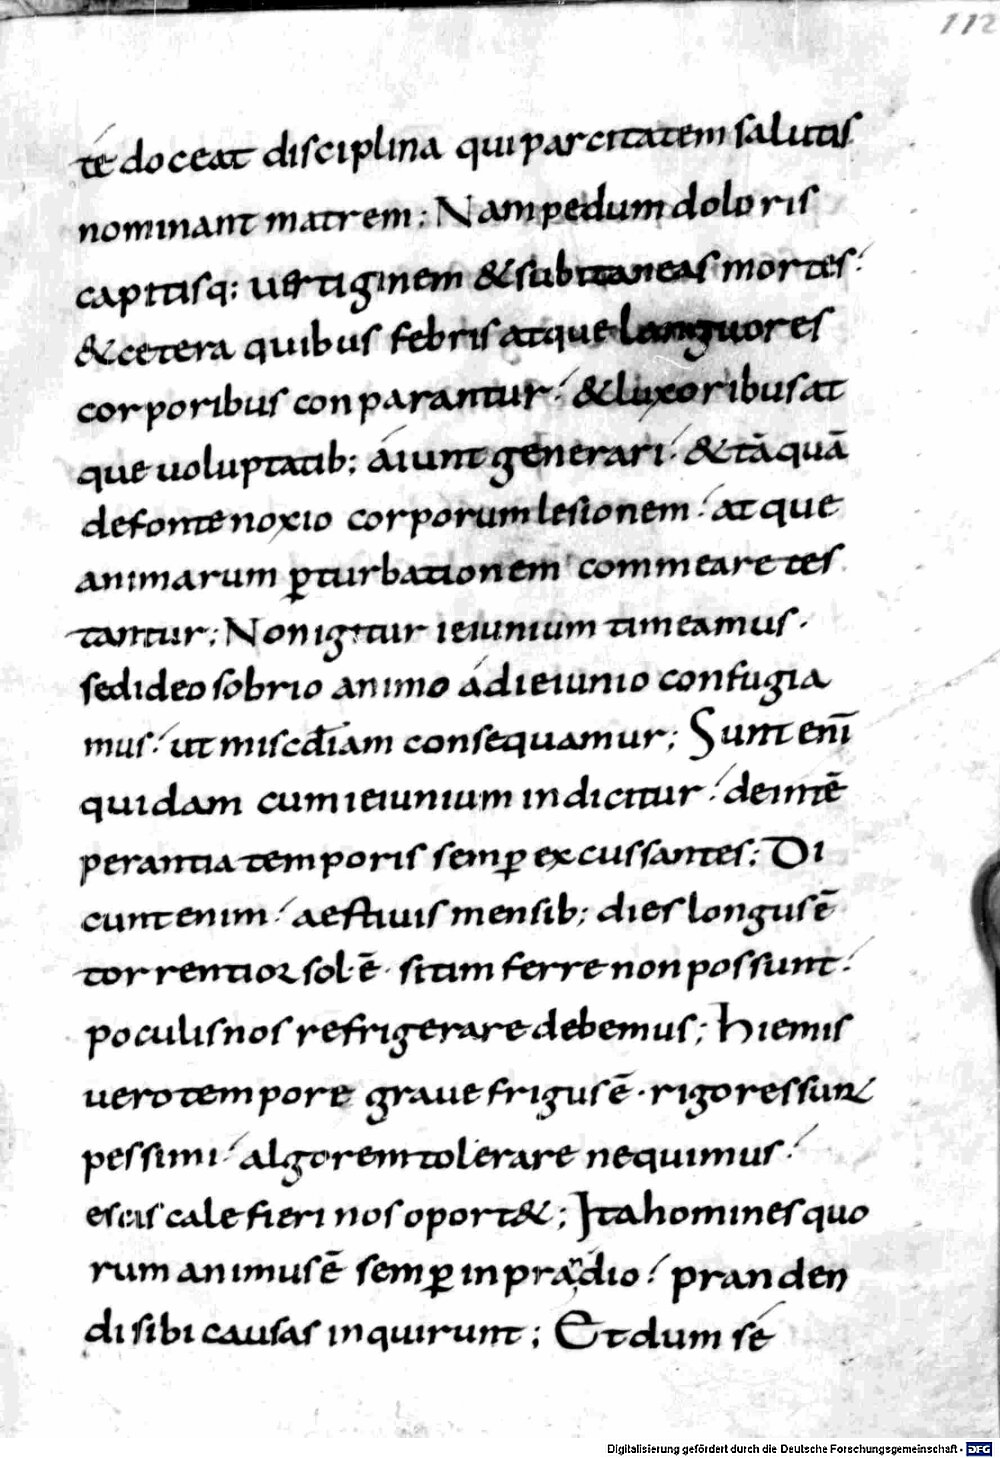 112
té doceat disciplina qui parcitatem salutis
nominant matrem; Nam pedum doloris
capitisq; uertiginem & subitaneas mortes:
& cetera quibus febris atque languores
corporibus conparantur: & luxoribus at
que uoluptatib; áiunt generari: & tā quā
de fonte noxio corporum lesionem: atque
animarum ꝑturbationem commeare tes
tantur; Non igitur ieiunium timeamus.
sed ideo sobrio animo ádieiunio confugia
mus: ut miscd̄iam consequamur; Sunt eni̅
quidam cum ieiunium indicitur: de intē
perantia temporis semꝑ excussantes; Di
cunt enim: aestiuis mensib; dies longus ē
torrentior sol ē. sitim ferre non possunt:
poculis nos refrigerare debemus; Hiemis
uero tempore graue frigus ē. rigores sunt
pessimi: algorem tolerare nequimus:
escis calefieri nos oport&; Ita homines quo
rum animus ē semꝑ in prandio: pranden
di sibi causas inquirunt; Et dum sé
Digitalisierung gefördert durch die Deutsche Forschungsgemeinschaft - DFG